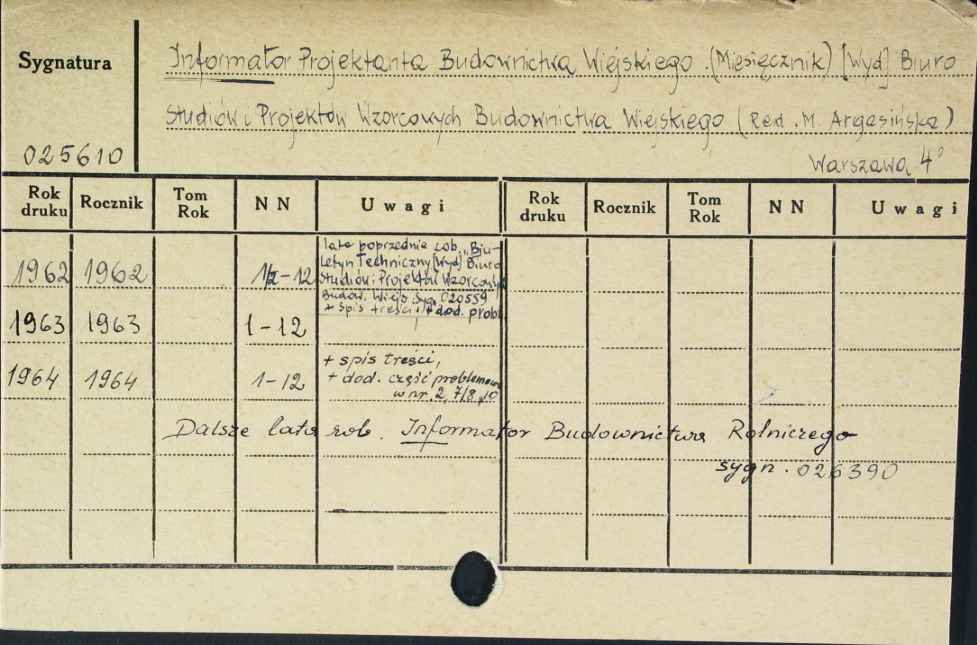 Sygnatura
Informator Projektanta Budownictwa Wiejskiego. (Miesięcznik) [Wyd] Biuro
Studiów i Projektów Wzorcowych Budownictwa Wiejskiego (Red. M. Argasińska)
025610
Warszawa, 4°
Rok druku Rocznik Tom Rok NN Uwagi Rok druku Rocznik Tom Rok NN Uwagi
lata poprzednie zob. „Biu-
letyn Techniczny [Wyd] Biuro
1962 1962 1/2-12 Studiów i Projektów Wzorcowych
Budow. Wiejs. Syg. 020559
1963 1963 1-12 + spis treści, + dod. probl.
+ spis treści,
1964 1964 1-12 + dod. część problemowa
w nr. 2, 7/8, 10
Dalsze lata zob. Informator Budownictwa Rolniczego
sygn. 026390